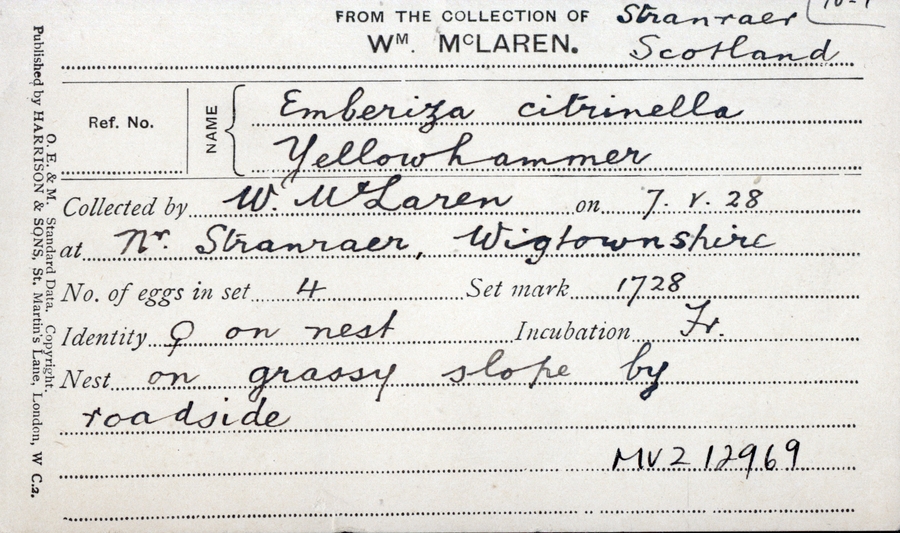 FROM THE COLLECTION OF Stranraer
Wᴹ. MᶜLAREN. Scotland
Ref. No. NAME Emberiza citrinella
Yellowhammer
Collected by W. McLaren on 7. V. 28
at Nr. Stranraer, Wigtownshire
No. of eggs in set 4 Set mark 1728
Identity ♀ on nest Incubation Fr.
Nest on grassy slope by
roadside
MVZ 12969
O. E. & M. Standard Data. Copyright.
Published by HARRISON & SONS, St. Martin's Lane, London, W C.2.